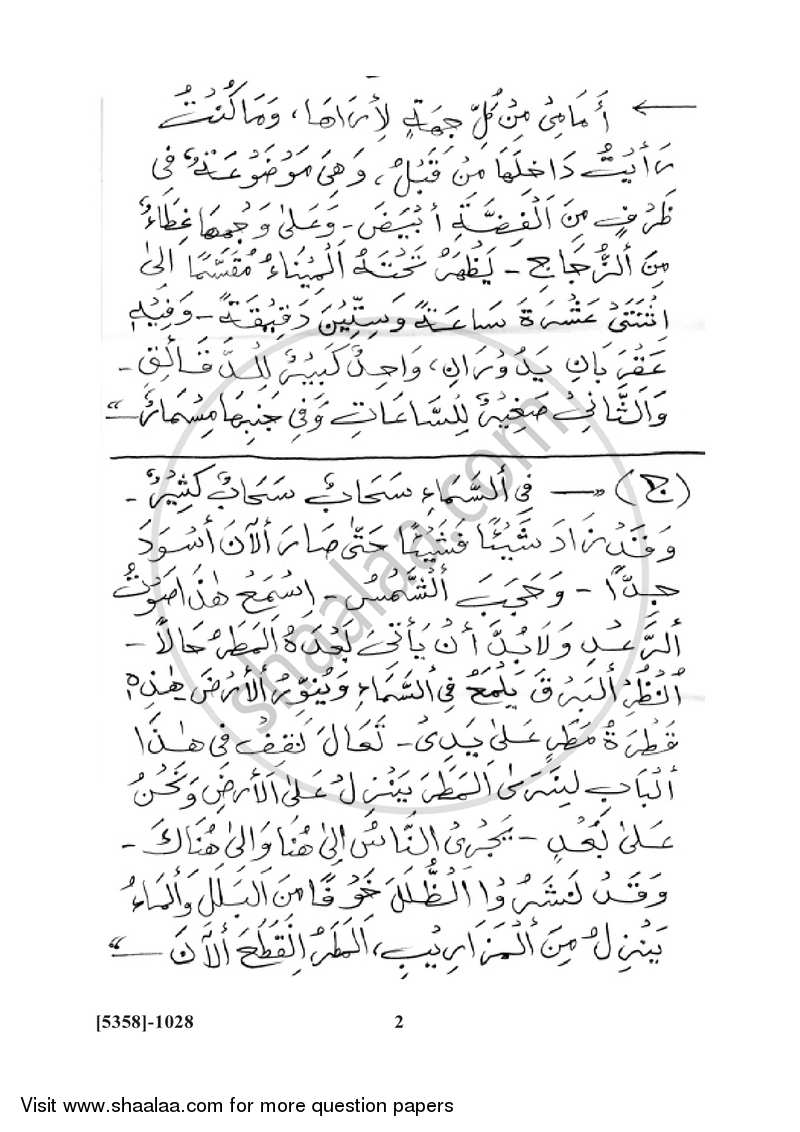 أَمَامِي مِنْ كُلِّ جِهَةٍ لِأَرَاهَا، وَمَا كُنْتُ
رَأَيْتُ دَاخِلَهَا مِنْ قَبْلُ، وَهِيَ مَوْضُوعَةٌ فِي
ظَرْفٍ مِنَ الْفِضَّةِ أَبْيَضَ - وَعَلَىٰ وَجْهِهَا غِطَاءٌ
مِنَ الزُّجَاجِ - يَظْهَرُ تَحْتَهُ الْمِينَاءُ مُقَسَّمًا إِلَىٰ
اثْنَتَيْ عَشْرَةَ سَاعَةً وَسِتِّينَ دَقِيقَةً - وَفِيهِ
عَقْرَبَانِ يَدُورَانِ، وَاحِدٌ كَبِيرٌ لِلدَّقَائِقِ -
وَالثَّانِيْ صَغِيرٌ لِلسَّاعَاتِ وَفِي جَنْبِهَا مِسْمَارٌ "
(ج) " — فِي السَّمَاءِ سَحَابٌ سَحَابٌ كَثِيرٌ -
وَقَدْ زَادَ شَيْئًا فَشَيْئًا حَتَّىٰ صَارَ الْآنَ أَسْوَدَ
جِدًّا - وَحَجَبَ الشَّمْسَ - اِسْمَعْ هٰذَا صَوْتُ
الرَّعْدِ وَلَا بُدَّ أَنْ يَأْتِيَ بَعْدَهُ الْمَطَرُ حَالًا -
اُنْظُرْ الْبَرْقَ يَلْمَعُ فِي السَّمَاءِ وَيُنَوِّرُ الْأَرْضَ هٰذِهِ
قَطْرَةُ مَطَرٍ عَلَىٰ يَدِيْ - تَعَالَ نَقِفْ فِي هٰذَا
الْبَابِ لِنَرَىٰ الْمَطَرَ يَنْزِلُ عَلَىٰ الْأَرْضِ وَنَحْنُ
عَلَىٰ بُعْدٍ - يَجْرِيْ النَّاسُ إِلَىٰ هُنَا وَإِلَىٰ هُنَاكَ -
وَقَدْ نَشَرُوْا الظُّلَلَ خَوْفًا مِنَ الْبَلَلِ وَالْمَاءُ
يَنْزِلُ مِنَ الْمَزَارِيبِ، الْمَطَرُ اِنْقَطَعَ الْآنَ — "
shaalaa.com
[5358]-1028 2
Visit www.shaalaa.com for more question papers